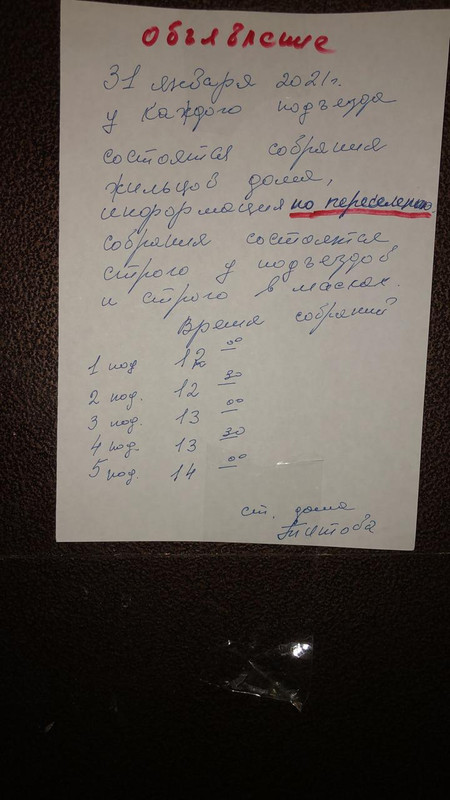 Объявление
31 января 2021г.
у каждого подъезда
состоятся собрания
жильцов дома,
информация по переселению.
собрания состоятся
строго у подъездов
и строго в масках.
Время собраний
1 под 12 00
2 под. 12 30
3 под. 13 00
4 под. 13 30
5 под 14 00
ст. дома